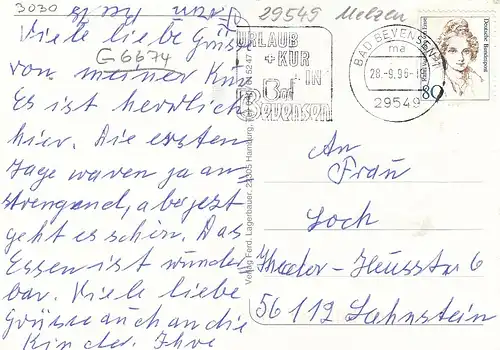 3030
29549 Melzen
Viele liebe Grüsse
von meiner Kur
G6674
Es ist herrlich
hier. Die ersten
Tage waren ja an-
strengend, aber jetzt
geht es schön. Das
Essen ist wunder
bar. Viele liebe
Grüsse auch an die
Kinder. Ihre
URLAUB
+KUR
IN
Bad
Bevensen
BAD BEVENSEN 1
ma
28.-8.96-
29549
Deutsche Bundespost
80
Verlag Ferd. Lagerbauer, 21205 Hamburg,
An
Frau
Loch
Theodor-Heussstr 6
56112 Lahnstein